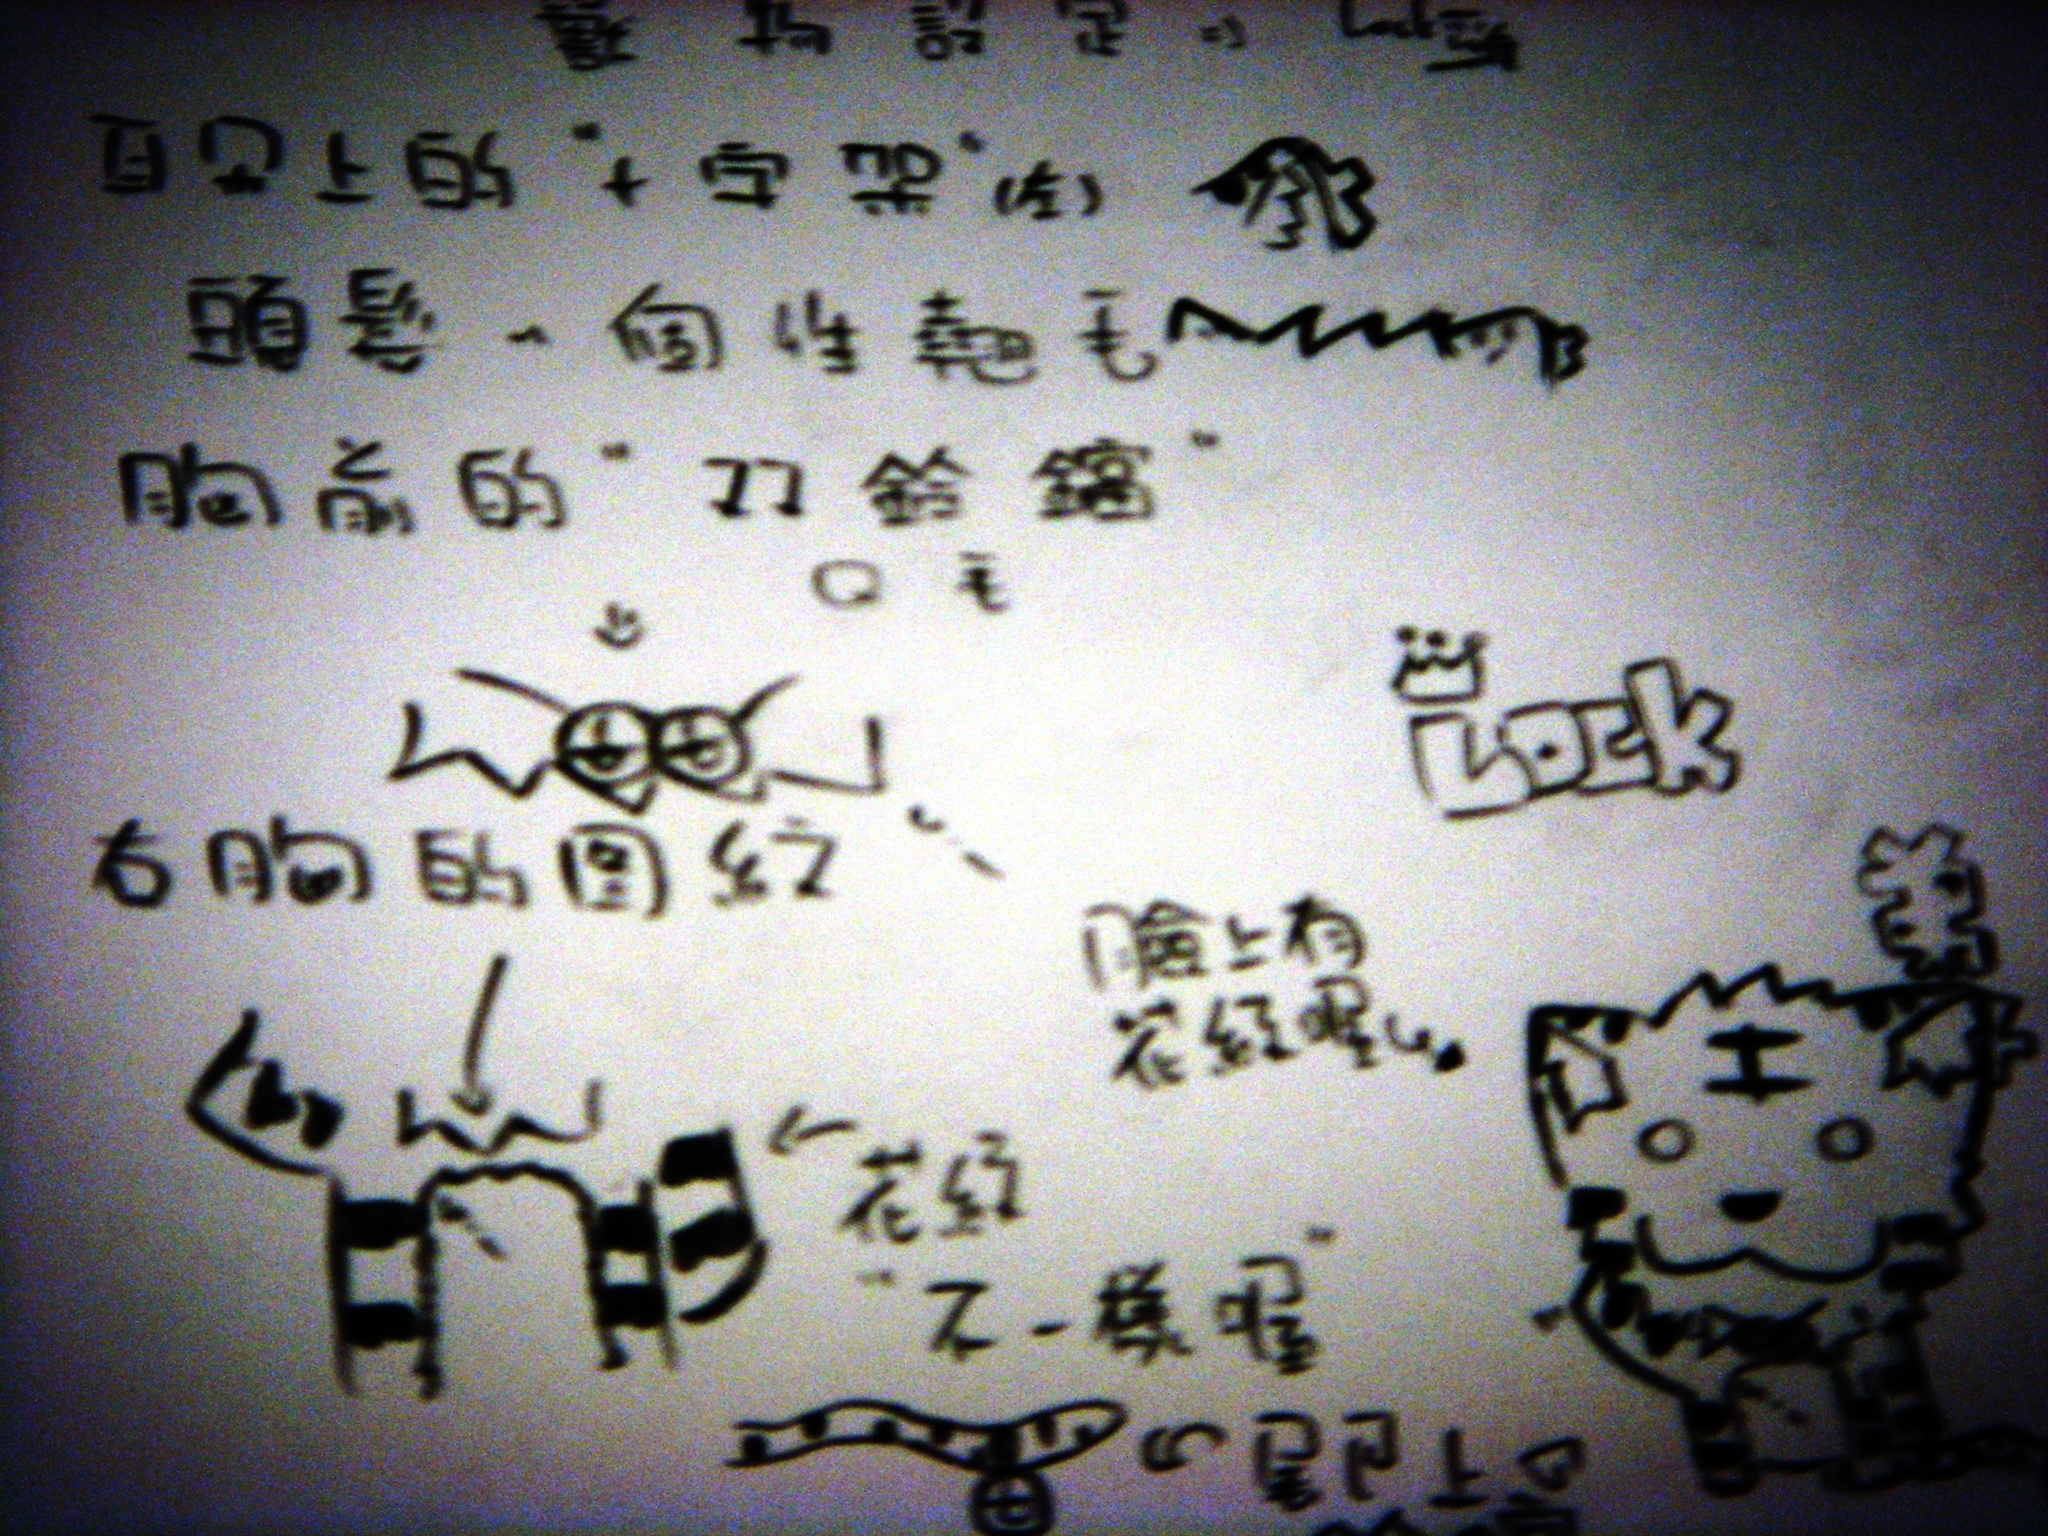 設定 Lock
耳朵上的"十字架"(左)
頭髮~個性翹毛
胸前的"双鈴鐺"
口毛
Lock
右胸的图紋
臉上有
花紋喔
花紋
"不一樣喔"
尾巴上口